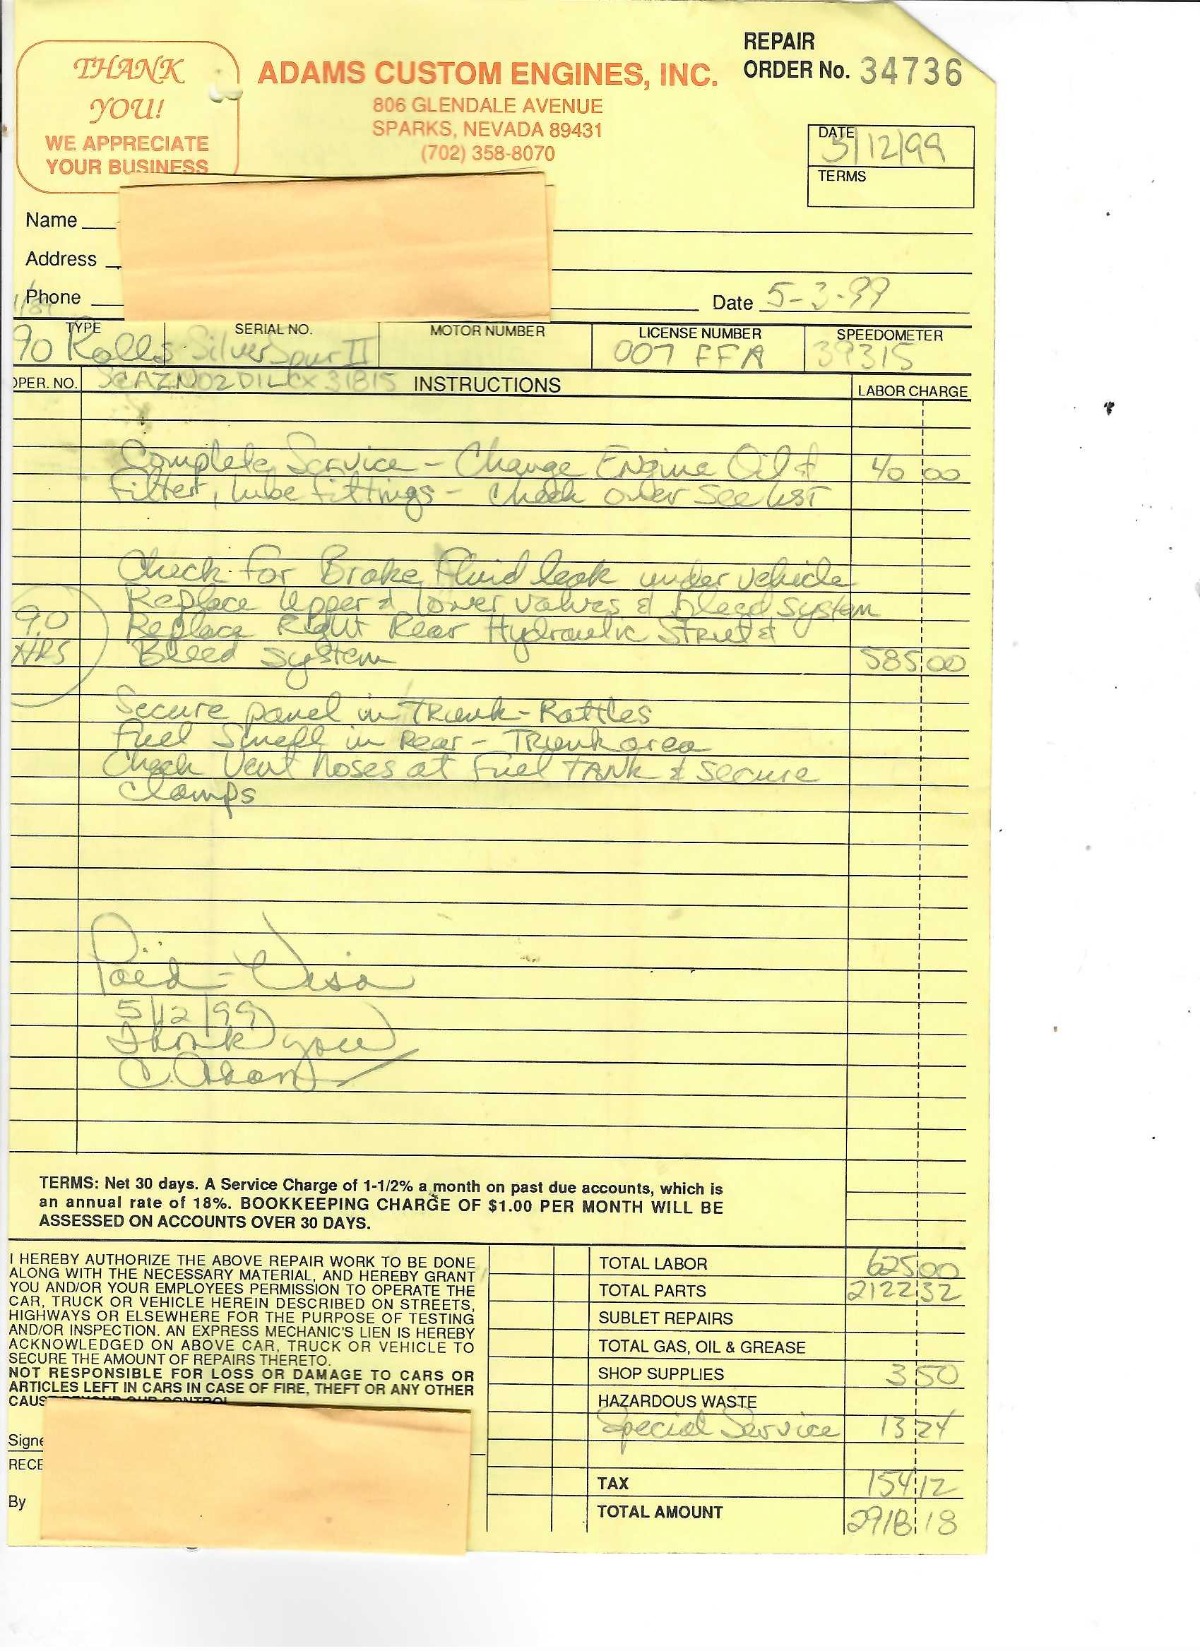 THANK
YOU!
WE APPRECIATE
YOUR BUSINESS
ADAMS CUSTOM ENGINES, INC.
806 GLENDALE AVENUE
SPARKS, NEVADA 89431
(702) 358-8070
REPAIR
ORDER No. 34736
DATE
5/12/99
TERMS
Name
Address
Phone
Date 5-3-99
TYPE SERIAL NO. MOTOR NUMBER LICENSE NUMBER SPEEDOMETER
90 Rolls Silver Spur II 007 FFA 39315
OPER. NO. SCAZN02D1LCX31815 INSTRUCTIONS LABOR CHARGE
Complete Service - Change Engine Oil & 40 00
Filter, lube fittings - Check over see list
Check for Brake Fluid leak under vehicle
Replace Upper & lower valves & bleed system
9.0 Replace Right Rear Hydraulic Strut &
HRS Bleed system 585 00
Secure panel in Trunk - Rattles
Fuel Smell in Rear - Trunk area
Check Vent hoses at Fuel TANK & secure
clamps
Paid - Visa
5/12/99
Thank you
TERMS: Net 30 days. A Service Charge of 1-1/2% a month on past due accounts, which is
an annual rate of 18%. BOOKKEEPING CHARGE OF $1.00 PER MONTH WILL BE
ASSESSED ON ACCOUNTS OVER 30 DAYS.
I HEREBY AUTHORIZE THE ABOVE REPAIR WORK TO BE DONE
ALONG WITH THE NECESSARY MATERIAL, AND HEREBY GRANT
YOU AND/OR YOUR EMPLOYEES PERMISSION TO OPERATE THE
CAR, TRUCK OR VEHICLE HEREIN DESCRIBED ON STREETS,
HIGHWAYS OR ELSEWHERE FOR THE PURPOSE OF TESTING
AND/OR INSPECTION. AN EXPRESS MECHANIC'S LIEN IS HEREBY
ACKNOWLEDGED ON ABOVE CAR, TRUCK OR VEHICLE TO
SECURE THE AMOUNT OF REPAIRS THERETO.
NOT RESPONSIBLE FOR LOSS OR DAMAGE TO CARS OR
ARTICLES LEFT IN CARS IN CASE OF FIRE, THEFT OR ANY OTHER
CAUS
Signe
RECE
By
TOTAL LABOR 625 00
TOTAL PARTS 2122 32
SUBLET REPAIRS
TOTAL GAS, OIL & GREASE
SHOP SUPPLIES 3 50
HAZARDOUS WASTE
Special Service 13 24
TAX 154 12
TOTAL AMOUNT 2918 18